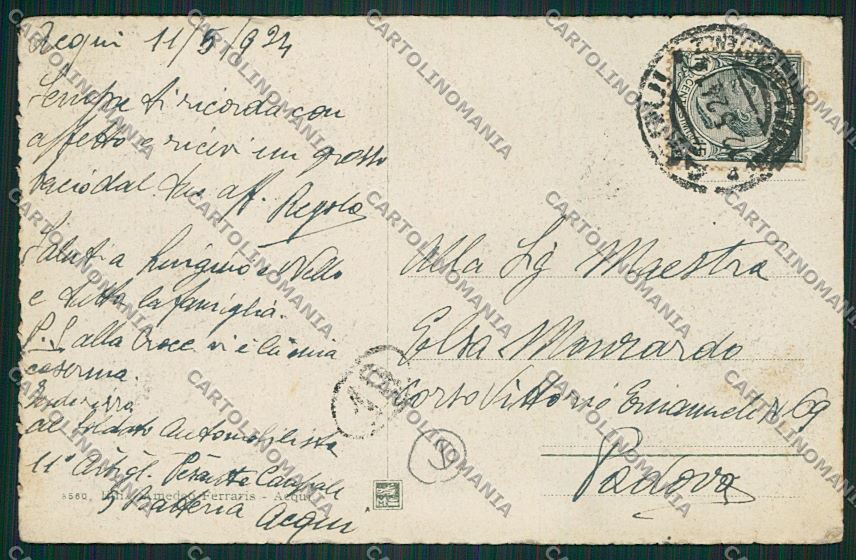 Acqui 11/5/924
Sempre ti ricorda con
affetto e ricevi un grosso
bacio dal tuo aff. Regolo
Saluti a Luigino e Nello
e tutta la famiglia.
P.S. alla croce vi è la mia
caserma.
Indirizzo
al Soldato Automobilista
11° Artigl. Pesante Campale
5 Batteria Acqui
8560. Amedeo Ferraris - Acqui
Alla Sig Maestra
Elsa Mourardo
Corso Vittorio Emanuele N 69
Padova
ACQUI
5 24
CENT
CARTOLINOMANIA